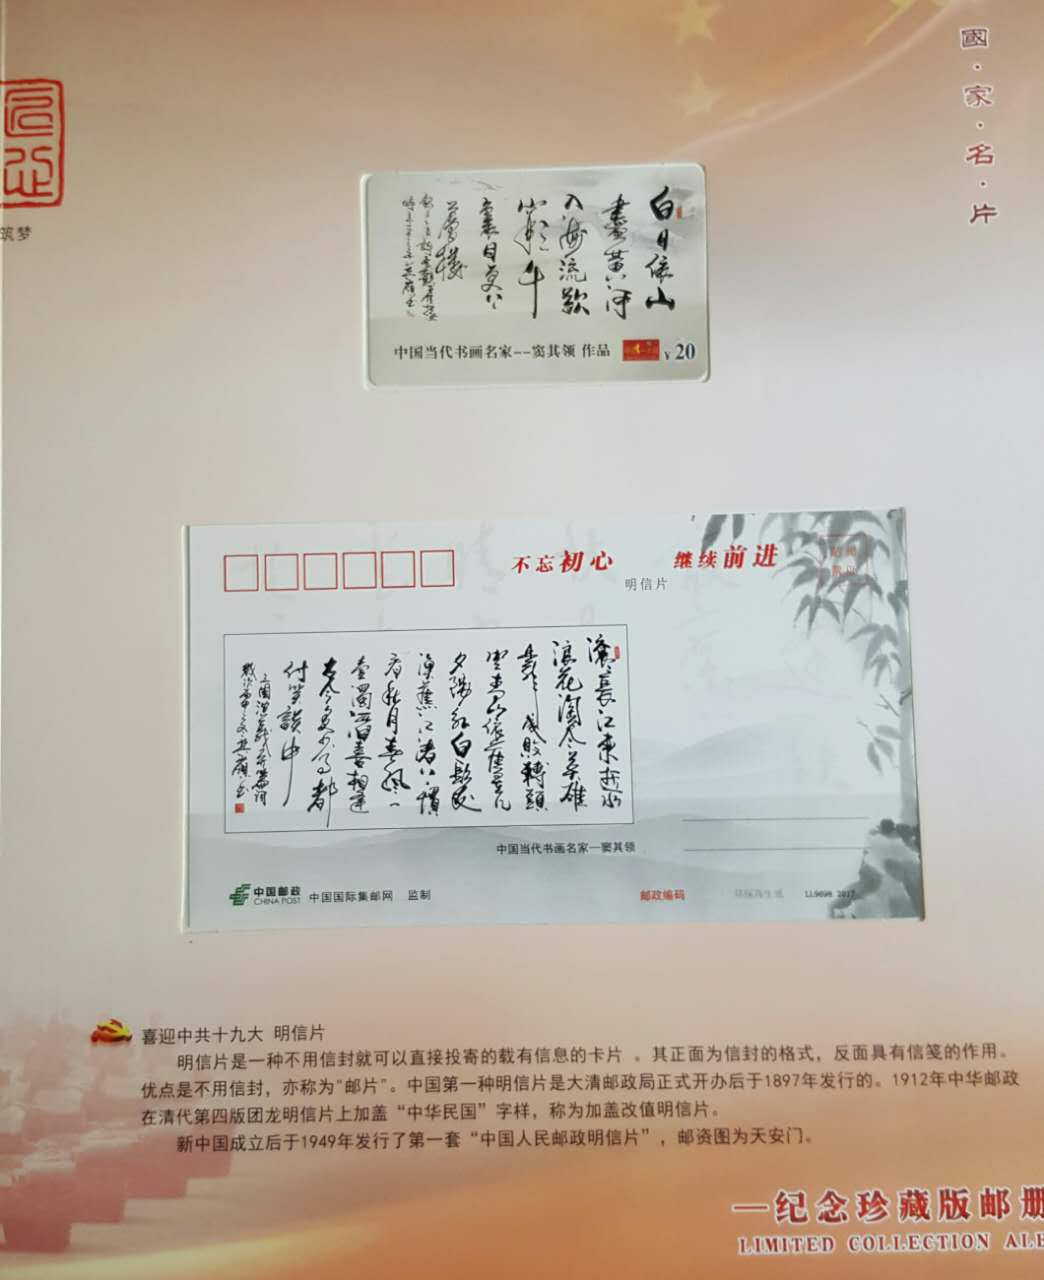 國·家·名·片
筑梦
白日依山
盡黄河
入海流欲
窮千
里目更上
一層樓
中国当代书画名家--窦其领 作品
¥20
不忘初心 继续前进
明信片
滚滚長江東逝水
浪花淘尽英雄
是非成敗轉頭
空青山依舊在几
夕陽红白髮漁
樵江渚上慣
看秋月春風一
壶濁酒喜相逢
古今多少事都
付笑談中
中国当代书画名家—窦其领
中国邮政
CHINA POST
中国国际集邮网 监制
邮政编码
环保再生纸
LL9698 2017
喜迎中共十九大 明信片
明信片是一种不用信封就可以直接投寄的载有信息的卡片 。其正面为信封的格式，反面具有信笺的作用。
优点是不用信封，亦称为"邮片"。中国第一种明信片是大清邮政局正式开办后于1897年发行的。1912年中华邮政
在清代第四版团龙明信片上加盖“中华民国”字样，称为加盖改值明信片。
新中国成立后于1949年发行了第一套“中国人民邮政明信片”，邮资图为天安门。
—纪念珍藏版邮册
LIMITED COLLECTION ALB